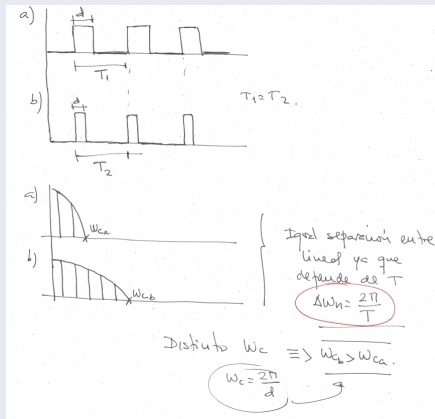 a)
d
T₁
T₁=T₂.
b)
d
T₂
a)
Wca
b)
Wcb
Igual separación entre
lineas ya que
depende de T
ΔWn = 2π/T
Distinto Wc ≡> Wcb > Wca.
Wc = 2π/d